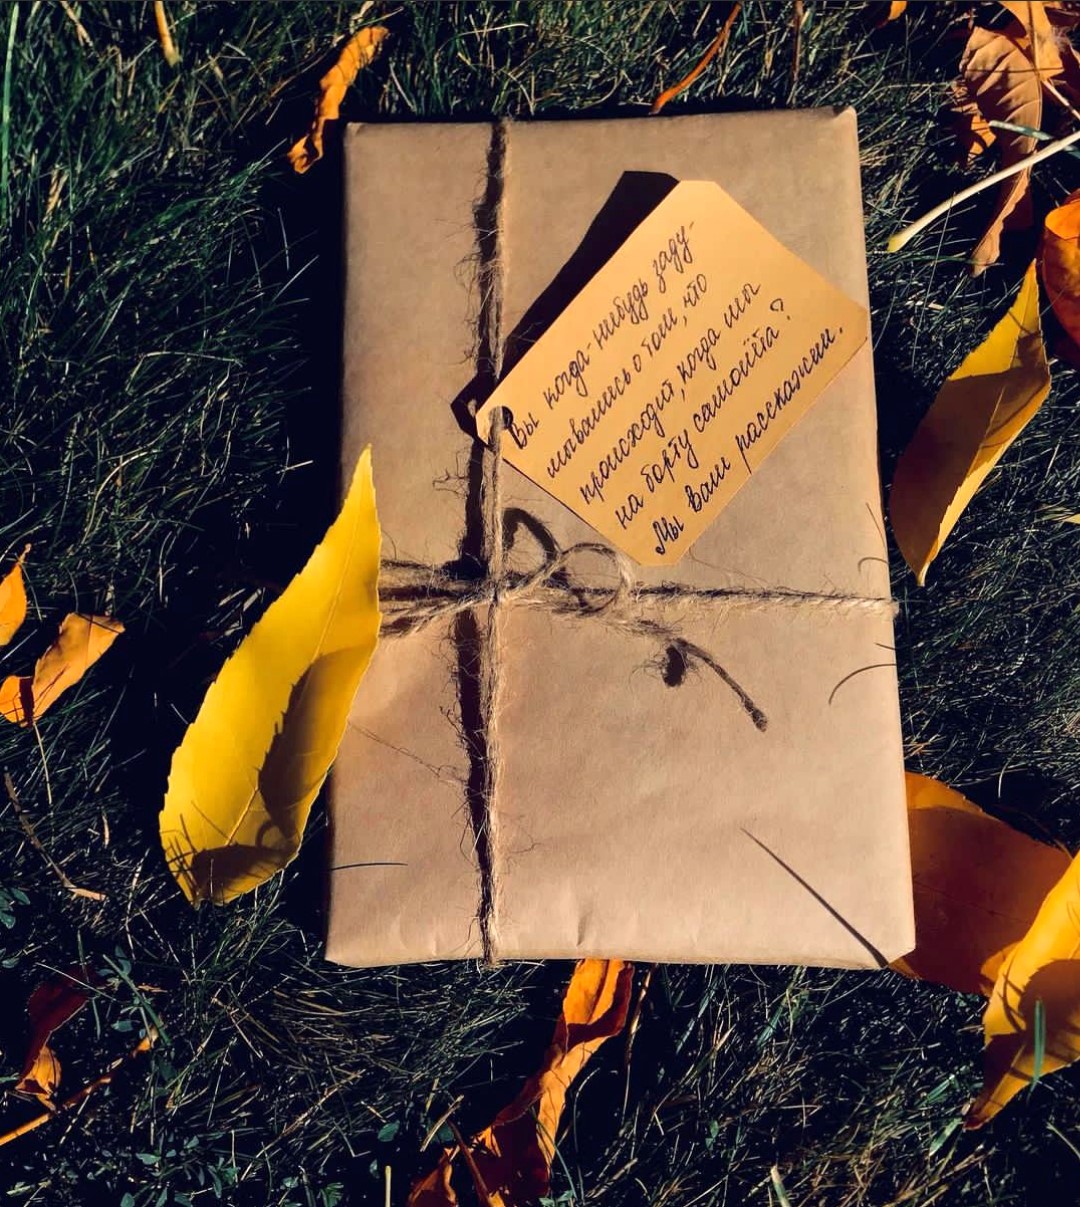 Вы когда-нибудь заду-
мывались о том, что
происходит, когда мы
на борту самолёта?
Мы вам расскажем.